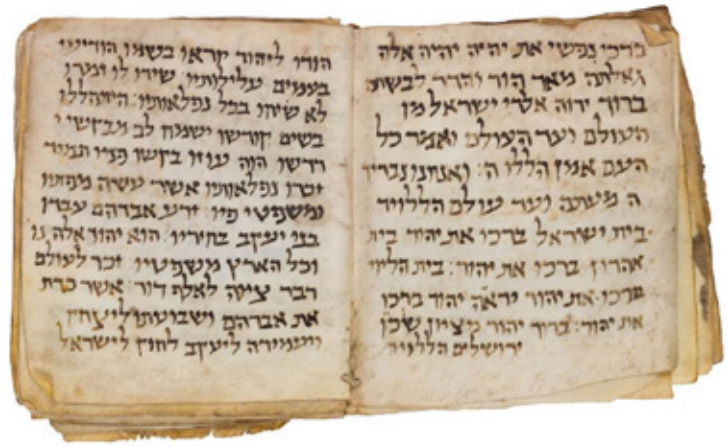 ברכי נפשי את יהיה יהיה אלה
גאלתה מאד הוד והדר לבשתה
ברוך יהוה אלהי ישראל מן
העולם ועד העולם ואמר כל
העם אמן הללו ה: ואנחנו נבריך
ה מעתה ועד עולם הללויה
בית ישראל ברכו את יהוד בית
אהרון ברכו את יהוד: בית הליוי
ברכו את יהוד יראה יהוד ברכו
את יהוד: ברוך יהוד מציון שכן
ירושלים הללויה
הודו ליהוד קראו בשמו הודיעו
בעמים עלילותיו שירו לו זמרו
לא שיחו בכל נפלאותיו: היתהללו
בשים קודשו ישמח לב מבקשי י
דרשו הוה עוזו בקשו פניו תמיד
זכרו נפלאותיו אשר עשה מפתיו
ומשפטי פיו: זרע אברהם עבדו
בני יעקב בחיריו: הוא יהוד אלה נו
וכל הארץ משפטיו: זכר לעולם
דבר ציוה לאלף דור: אשר כרת
את אברהם ושבועתו ליצחק
ויעמידה ליעקב לחוק לישראל